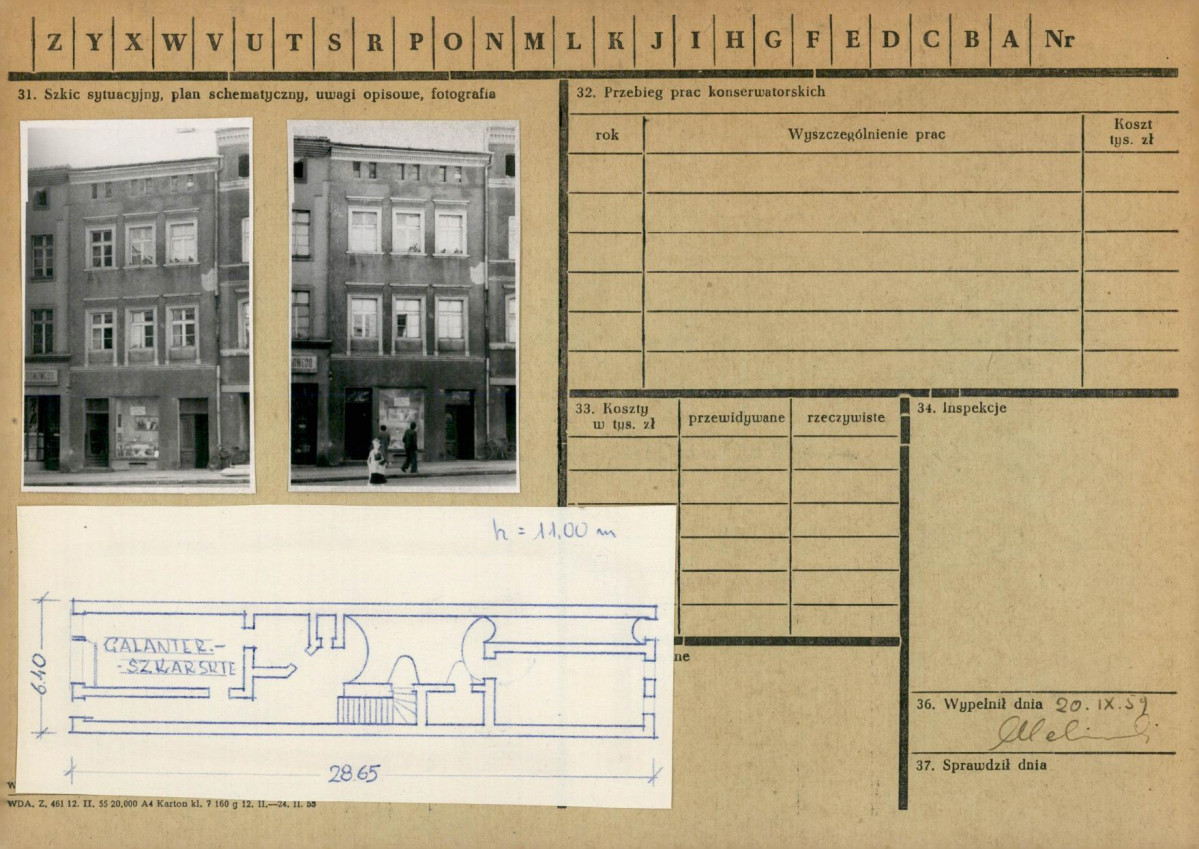 Z Y X W V U T S R P O N M L K J I H G F E D C B A Nr
31. Szkic sytuacyjny, plan schematyczny, uwagi opisowe, fotografia
32. Przebieg prac konserwatorskich
rok
Wyszczególnienie prac
Koszt
tys. zł
33. Koszty
w tys. zł
przewidywane
rzeczywiste
34. Inspekcje
h = 11.00 m
GALANTER.-
-SZKARSKIE
6.40
28.65
ne
36. Wypełnił dnia 20. IX. 59
37. Sprawdził dnia
W
WDA. Z. 461 12. II. 55 20,000 A4 Karton kl. 7 160 g 12. II.—24. II. 55